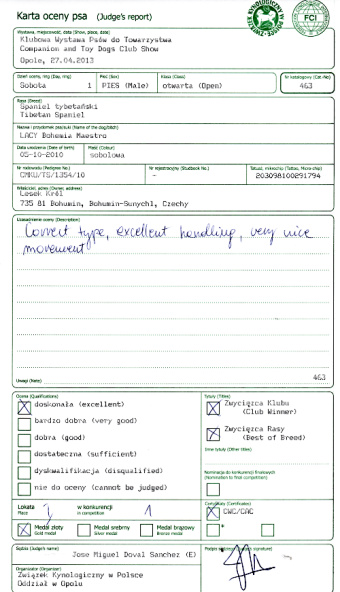 Karta oceny psa (Judge's report)
ZWIĄZEK KYNOLOGICZNY W POLSCE
FCI
Wystawa, miejscowość, data (Show, place, date)
Klubowa Wystawa Psów do Towarzystwa
Companion and Toy Dogs Club Show
Opole, 27.04.2013
Dzień oceny, ring (Day, ring) Płeć (Sex) Klasa (Class) Nr katalogowy (Cat.-No)
Sobota 1 PIES (Male) otwarta (Open) 463
Rasa (Breed)
Spaniel tybetański
Tibetan Spaniel
Nazwa i przydomek psa/suki (Name of the dog/bitch)
LACY Bohemia Maestro
Data urodzenia (Date of birth) Maść (Colour)
05-10-2010 sobolowa
Nr rodowodu (Pedigree No.) Nr rejestracyjny (Studbook No.) Tatuaż, mikrochip (Tattoo, Micro-chip)
CMKU/TS/1354/10 - 203098100291794
Właściciel, adres (Owner, address)
Lesek Król
735 81 Bohumin, Bohumin-Sunychl, Czechy
Uzasadnienie oceny (Description)
Correct type, excellent handling, very nice
movement
463
Uwagi (Note)
Ocena (Qualifications) Tytuły (Titles)
doskonała (excellent) Zwycięzca Klubu
(Club Winner)
bardzo dobra (very good)
dobra (good) Zwycięzca Rasy
(Best of Breed)
dostateczna (sufficient) Inne tytuły (Other titles)
dyskwalifikacja (disqualified) Nominacja do konkurencji finałowych
(Nomination to final competition)
nie do oceny (cannot be judged)
Lokata 1 w konkurencji 1 Certyfikaty (Certificates)
Place in competition CWC/CAC
Medal złoty Medal srebrny Medal brązowy
Gold medal Silver medal Bronze medal
Sędzia (Judge's name)
Jose Miguel Doval Sanchez (E)
Organizator (Organizer)
Związek Kynologiczny w Polsce
Oddział w Opolu